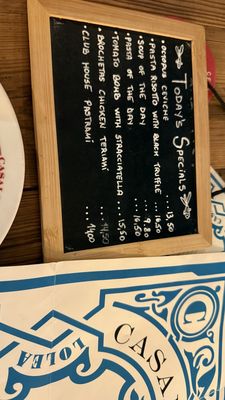 TODAY'S SPECIALS
• OCTOPUS CEVICHE ... 13,50
• PASTA RISOTTO WITH BLACK TRUFFLE ... 16,50
• SOUP OF THE DAY ... 9.80
• PASTA OF THE DAY ... 16.50
• TOMATO BOMB WITH STRACCIATELLA ... 15,50
• BROCHETAS CHICKEN TERIAKI ... 14,50
• CLUB HOUSE PASTRAMI ... 14,00
CASA
LOLEA
CASA